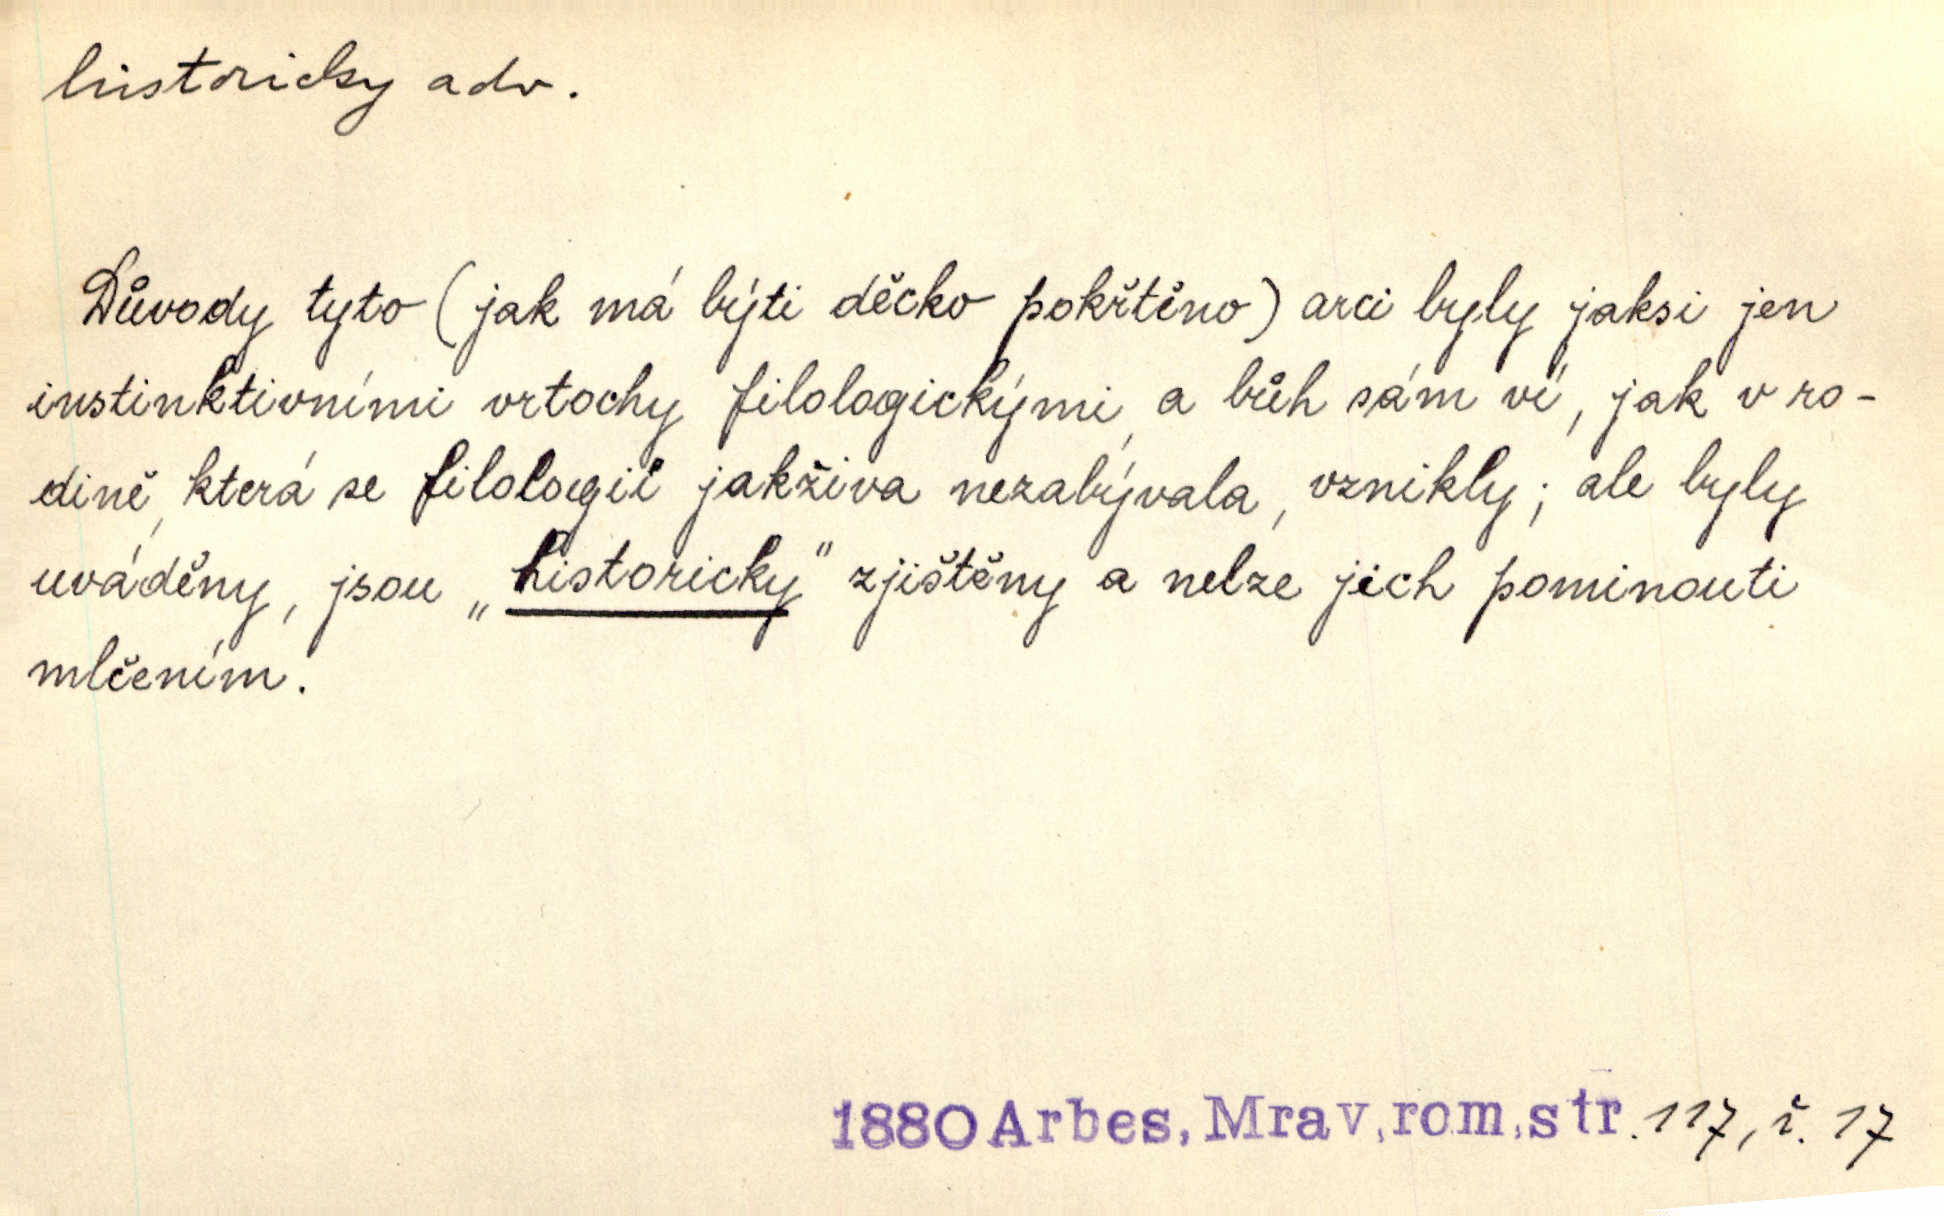 historicky adv.
Důvody tyto (jak má býti děcko pokřtěno) arci byly jaksi jen
instinktivními vrtochy filologickými, a bůh sám ví, jak v ro-
dině, která se filologií jakživa nezabývala, vznikly; ale byly
uváděny, jsou „historicky“ zjištěny a nelze jich pominouti
mlčením.
1880 Arbes, Mrav. rom. str. 117, ř. 17